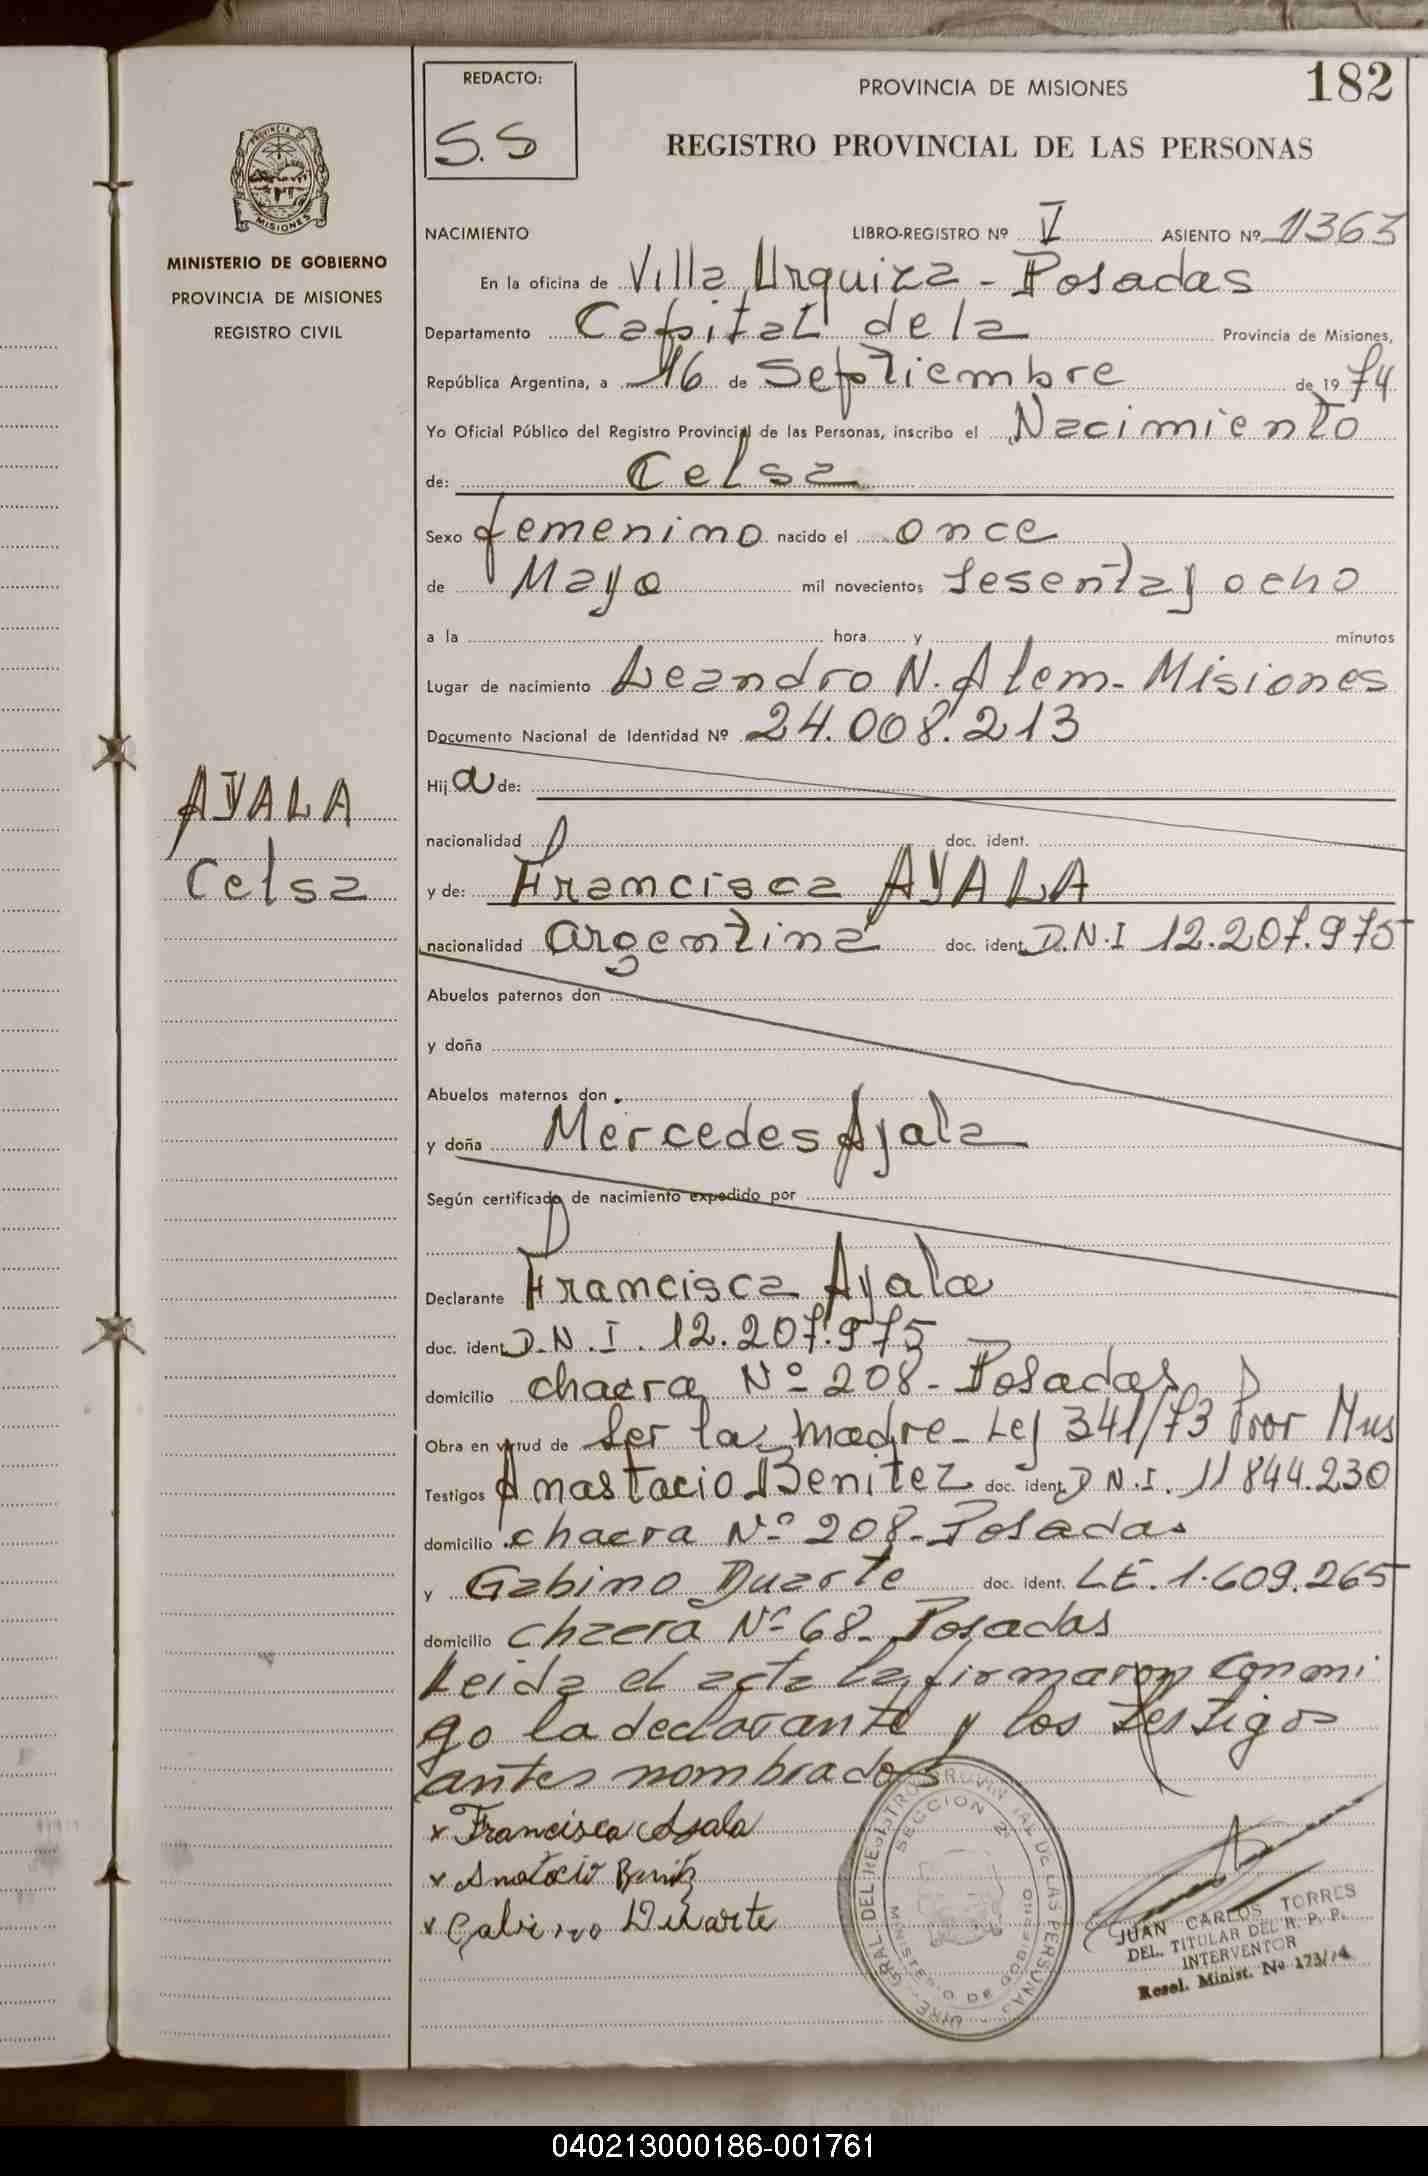 REDACTO:
S.S
PROVINCIA DE MISIONES
182
REGISTRO PROVINCIAL DE LAS PERSONAS
PROVINCIA DE
MISIONES
MINISTERIO DE GOBIERNO
PROVINCIA DE MISIONES
REGISTRO CIVIL
NACIMIENTO LIBRO-REGISTRO Nº V ASIENTO Nº 1363
En la oficina de Villa Urquiza - Posadas
Departamento Capital de la Provincia de Misiones,
República Argentina, a 16 de Septiembre de 1974
Yo Oficial Público del Registro Provincial de las Personas, inscribo el Nacimiento
de: Celsa
Sexo femenino nacido el once
de Mayo mil novecientos sesenta y ocho
a la hora y minutos
Lugar de nacimiento Leandro N. Alem - Misiones
Documento Nacional de Identidad Nº 24.008.213
Hija de:
nacionalidad doc. ident.
AYALA
Celsa
y de: Francisca AYALA
nacionalidad argentina doc. ident. D.N.I 12.207.975
Abuelos paternos don
y doña
Abuelos maternos don
y doña Mercedes Ayala
Según certificado de nacimiento expedido por
Declarante Francisca Ayala
doc. ident. D.N.I. 12.207.975
domicilio chacra Nº 208 - Posadas
Obra en virtud de Ser la madre - Ley 341/73 Mns
Testigos Anastacio Benitez doc. ident. D N.I. 11 844.230
domicilio chacra Nº 208 - Posadas
y Gabino Duarte doc. ident. LE. 1.609.265
domicilio chacra Nº 68 - Posadas
Leida el acta la firmaron conmi
go la declarante y los testigos
antes nombrados
x Francisca Ayala
x Anatacio
x Gabino Duarte
DIRE. GRAL DEL REGISTRO PROVINCIAL DE LAS PERSONAS
SECCION 2ª
MINISTERIO DE GOBIERNO
JUAN CARLOS TORRES
DEL. TITULAR DEL R. P. P.
INTERVENTOR
Resol. Minist. Nº 173/74
040213000186-001761